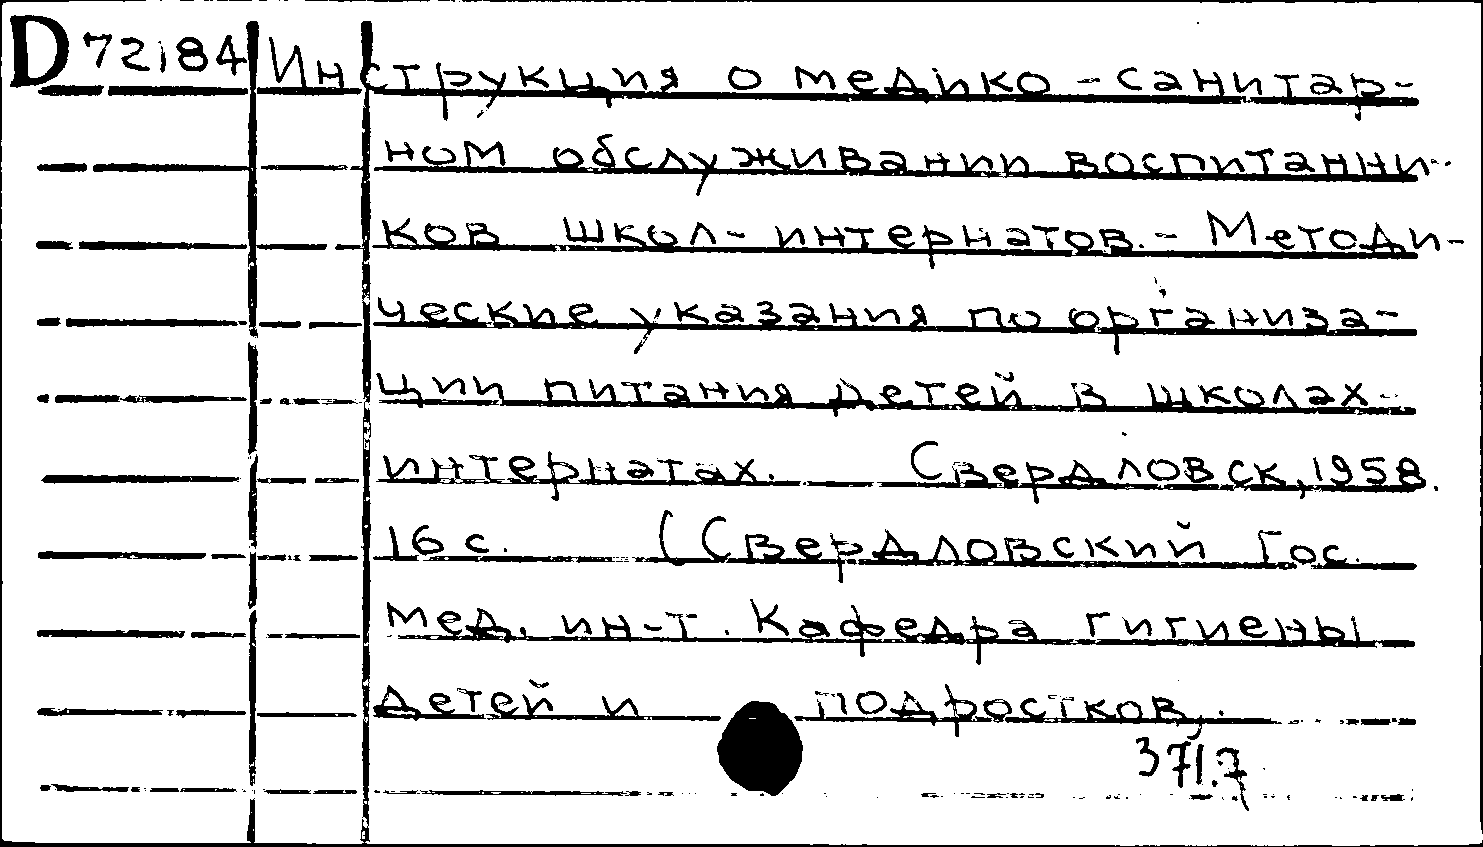 D 72184 Инструкция о медико-санитар-
ном обслуживании воспитанни-
ков школ-интернатов. - Методи-
ческие указания по организа-
ции питания детей в школах-
интернатах. Свердловск, 1958.
16 с. (Свердловский Гос.
мед. ин-т. Кафедра гигиены
детей и подростков,.
371.7